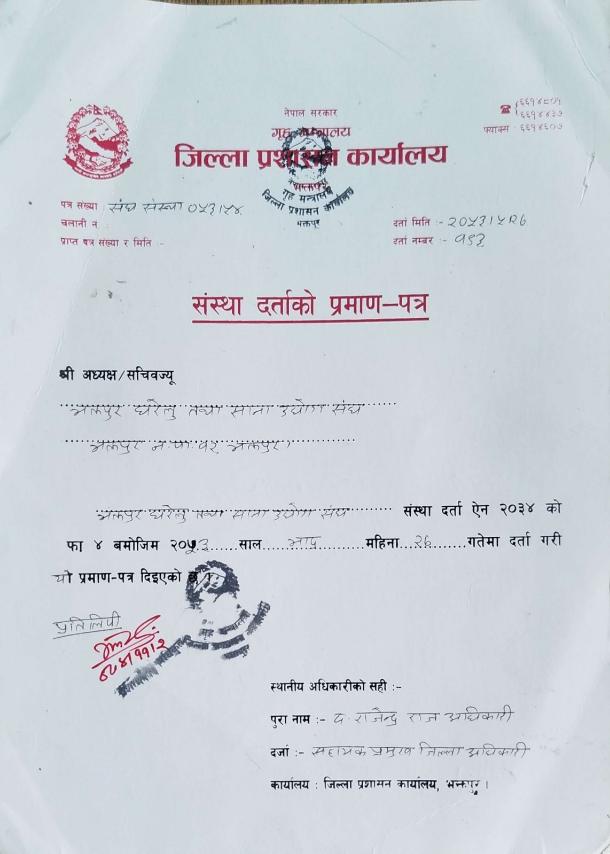 नेपाल सरकार
गृह मन्त्रालय
जिल्ला प्रशासन कार्यालय
भक्तपुर
गृह मन्त्रालय
जिल्ला प्रशासन कार्यालय
भक्तपुर
फ्याक्स : ६६१४६०७
पत्र संख्या : संघ संस्था ०५३।५४
चलानी नं
प्राप्त पत्र संख्या र मिति :-
दर्ता मिति :- २०५३।५।२६
दर्ता नम्बर :- १९३
संस्था दर्ताको प्रमाण–पत्र
श्री अध्यक्ष/सचिवज्यू
भक्तपुर घरेलु तथा साना उद्योग संघ
भक्तपुर न.पा. भक्तपुर।
भक्तपुर घरेलु तथा साना उद्योग संघ संस्था दर्ता ऐन २०३४ को
फा ४ बमोजिम २०५३ साल भाद्र महिना २६ गतेमा दर्ता गरी
यो प्रमाण-पत्र दिइएको छ ।
प्रतिलिपी
स्थानीय अधिकारीको सही :-
पुरा नाम :- द. राजेन्द्र राज अधिकारी
दर्जा :- सहायक प्रमुख जिल्ला अधिकारी
कार्यालय : जिल्ला प्रशासन कार्यालय, भक्तपुर ।